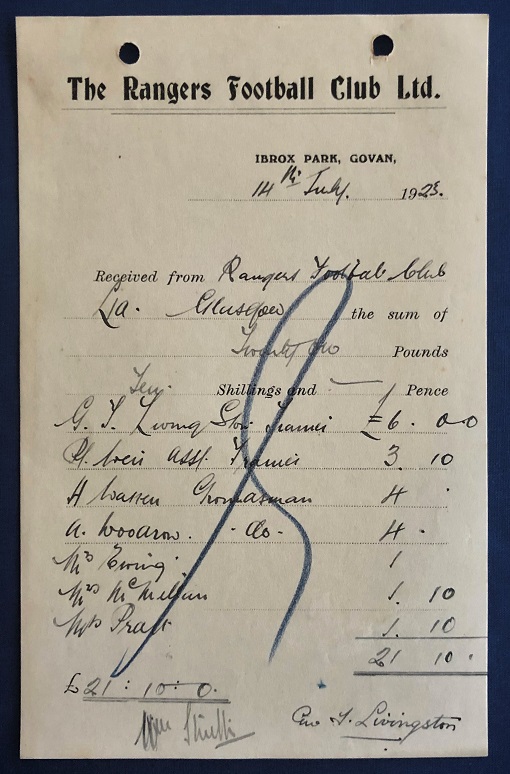 The Rangers Football Club Ltd.
IBROX PARK, GOVAN,
14th July. 1923.
Received from Rangers Football Club
Glasgow the sum of
Twenty One Pounds
Ten Shillings and — Pence
G. T. Livingston Trainer £6. 00
Asst. Trainer 3. 10
H Warren Groundsman 4
A. Woodrow. -do- 4.
Mrs Ewing. 1
Mrs McMillan 1. 10
Mrs Pratt 1. 10
21 10.
£21 : 10 : 0.
Geo T. Livingston